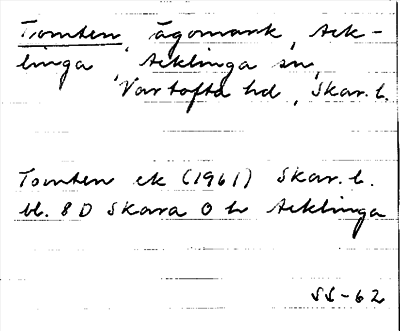 Tomten, ägomark, Ack-
linga, Acklinga sn,
Vartofta hd, Skar. l.
Tomten ek (1961) Skar. l.
bl. 8 D Skara O h Acklinga
SS-62